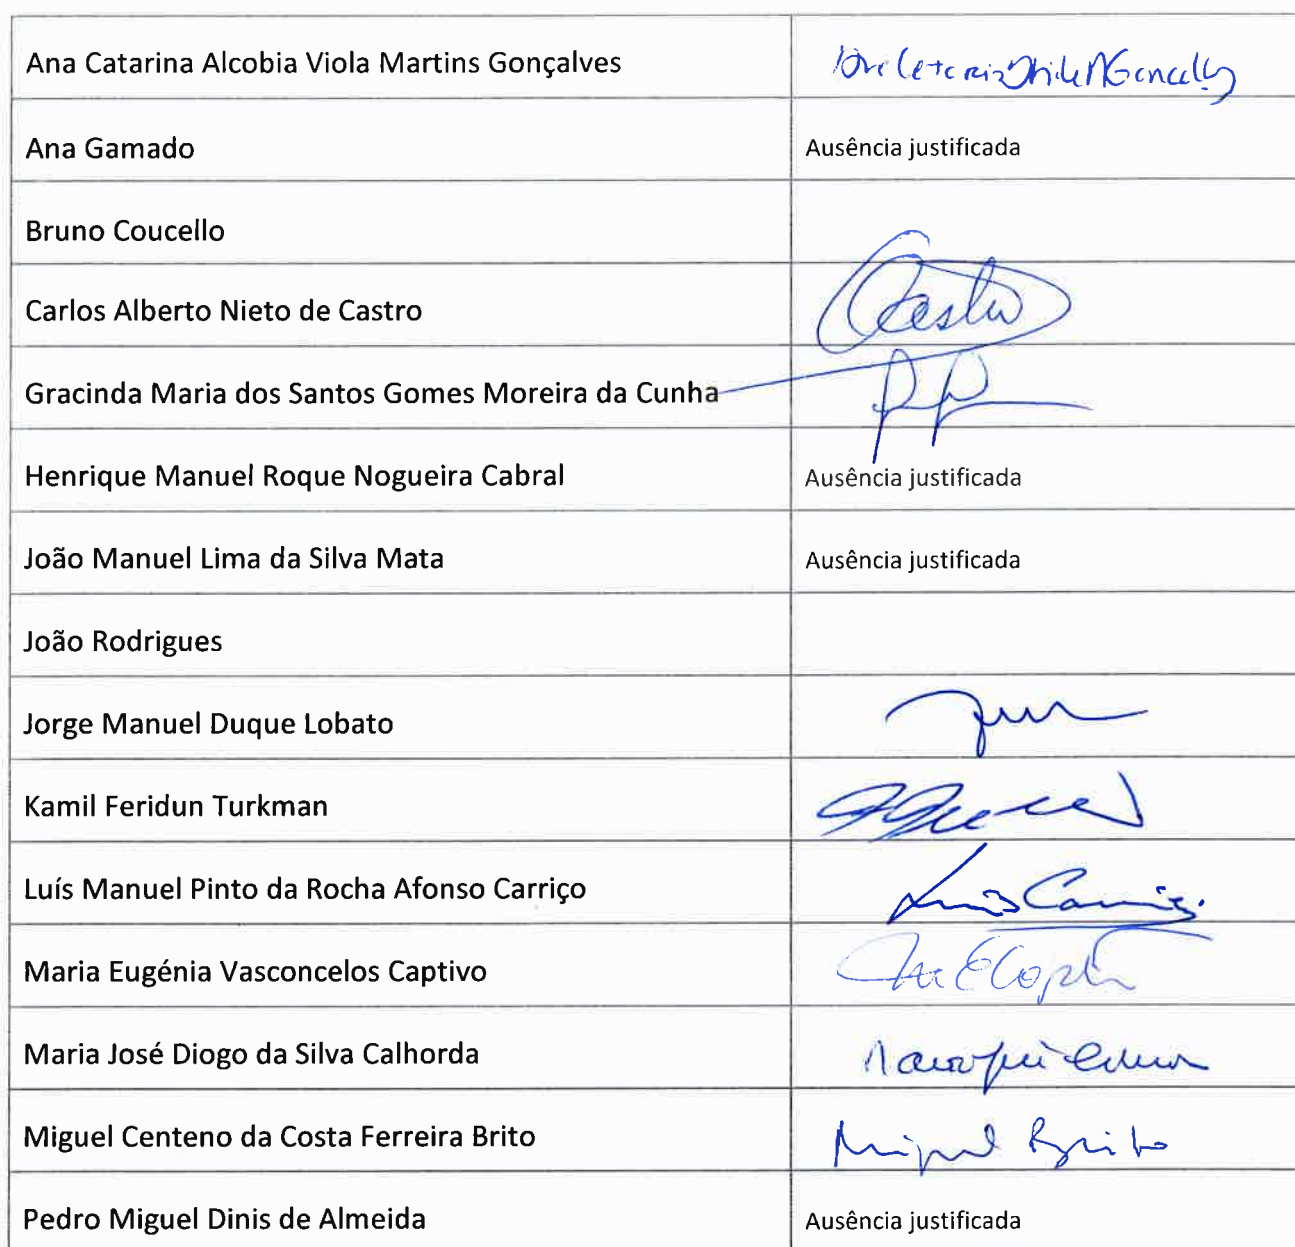 Ana Catarina Alcobia Viola Martins Gonçalves
Ana Gamado
Ausência justificada
Bruno Coucello
Carlos Alberto Nieto de Castro
Castro
Gracinda Maria dos Santos Gomes Moreira da Cunha
Henrique Manuel Roque Nogueira Cabral
Ausência justificada
João Manuel Lima da Silva Mata
Ausência justificada
João Rodrigues
Jorge Manuel Duque Lobato
Kamil Feridun Turkman
Luís Manuel Pinto da Rocha Afonso Carriço
Luís Carriço
Maria Eugénia Vasconcelos Captivo
Maria José Diogo da Silva Calhorda
Miguel Centeno da Costa Ferreira Brito
Miguel Brito
Pedro Miguel Dinis de Almeida
Ausência justificada